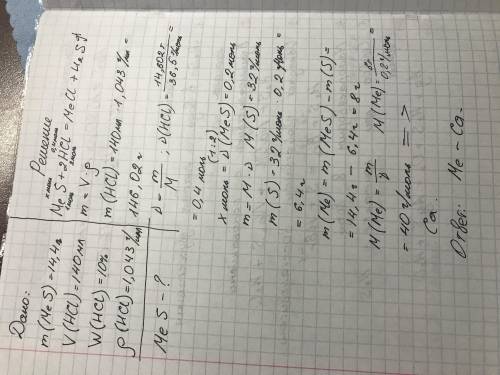 Дано:
m(MeS)=14,4г
V(HCl)=140мл
W(HCl)=10%
ρ(HCl)=1,043 г/мл
MeS-?
Решение
x моль 0,4моль
MeS+2HCl=MeCl+H₂S↑
2моль
m=V·ρ
m(HCl)=140мл·1,043 г/мл=
146,02г
ν=m/M; ν(HCl)=14,602г/36,5г/моль=
=0,4моль (1:2)
x моль=ν(MeS)=0,2моль
m=M·ν M(S)=32г/моль
m(S)=32г/моль·0,2моль=
=6,4г
m(Me)=m(MeS)-m(S)=
=14,4г-6,4г=8г
M(Me)=m/ν M(Me)=8г/0,2моль=
=40г/моль =>
Ca.
Ответ: Me-Ca.